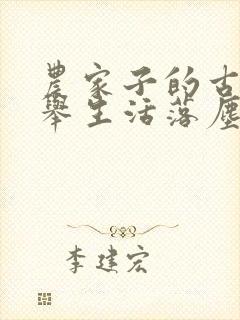 農家子的古
舉生活落塵
李建宏